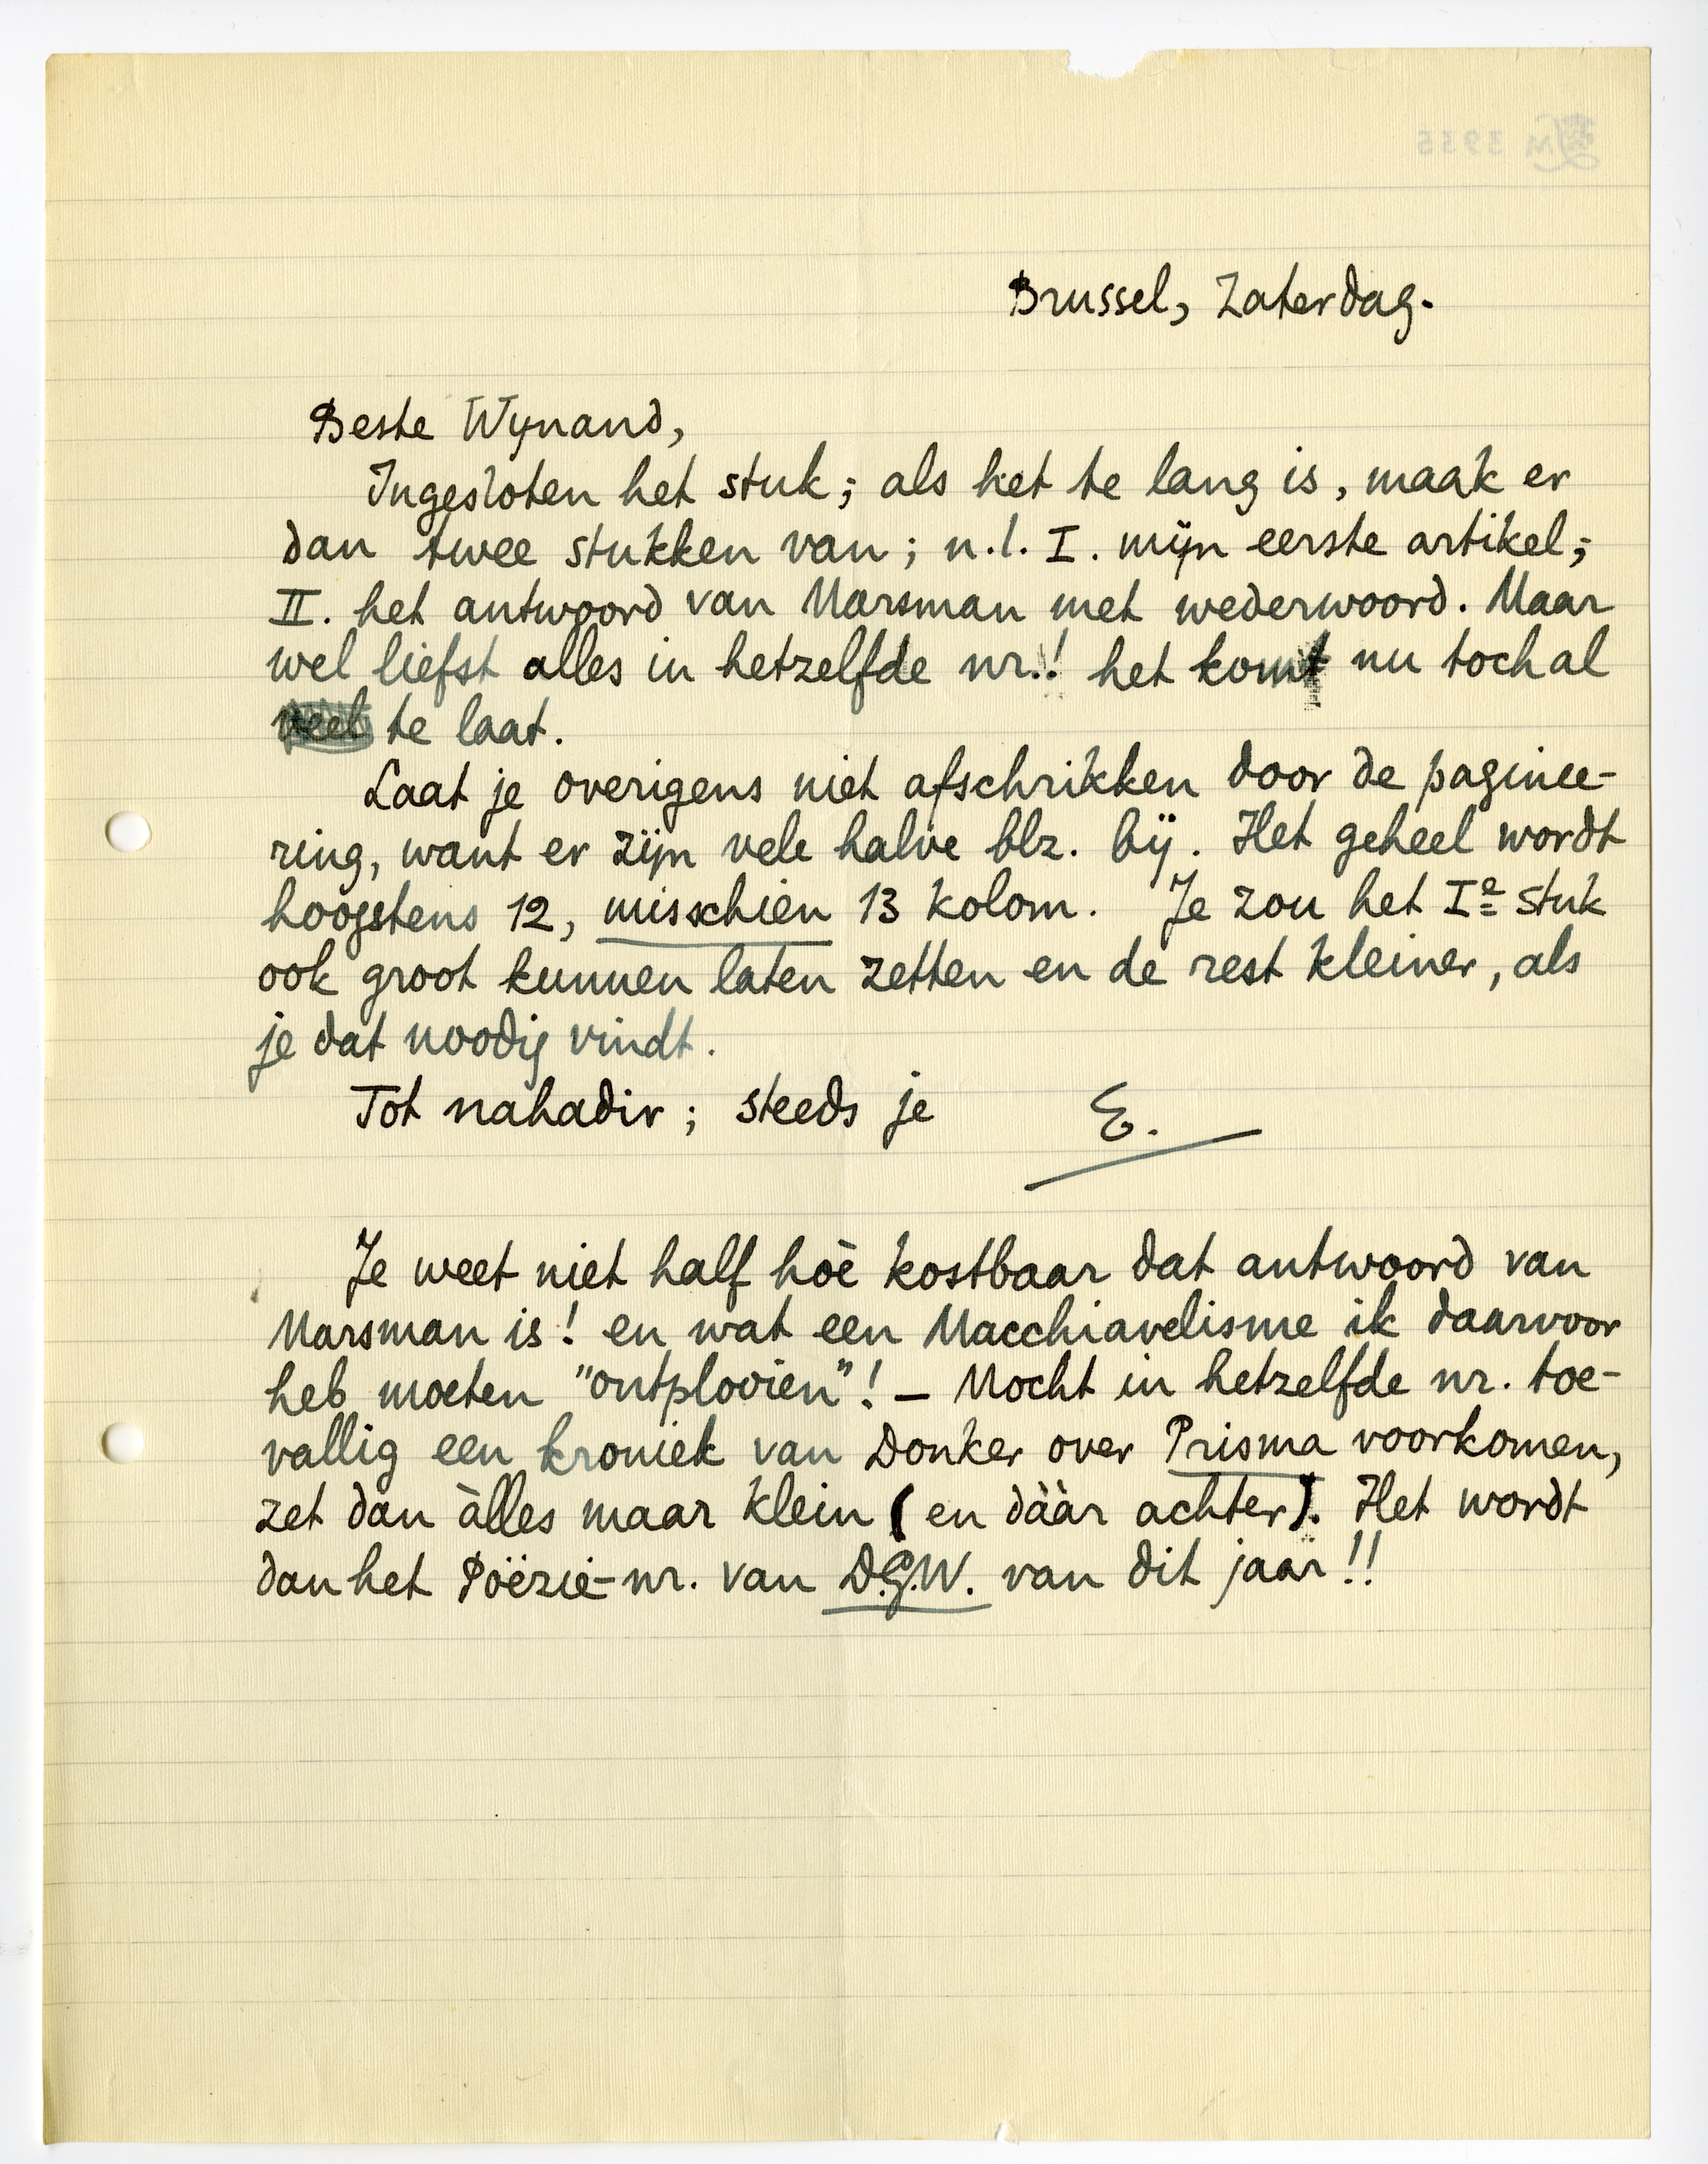 Brussel, Zaterdag.
Beste Wynand,
Ingesloten het stuk; als het te lang is, maak er
dan twee stukken van; n.l. I. mijn eerste artikel;
II. het antwoord van Marsman met wederwoord. Maar
wel liefst alles in hetzelfde nr.! het komt nu toch al
veel te laat.
Laat je overigens niet afschrikken door de paginee-
ring, want er zijn vele halve blz. bij. Het geheel wordt
hoogstens 12, misschien 13 kolom. Je zou het Ie stuk
ook groot kunnen laten zetten en de rest kleiner, als
je dat noodig vindt.
Tot nahadir; steeds je E.
Je weet niet half hoè kostbaar dat antwoord van
Marsman is! en wat een Macchiavelisme ik daarvoor
heb moeten "ontplooien"! – Mocht in hetzelfde nr. toe-
vallig een kroniek van Donker over Prisma voorkomen,
zet dan àlles maar klein (en dààr achter). Het wordt
dan het Poëzie-nr. van D.G.W. van dit jaar!!